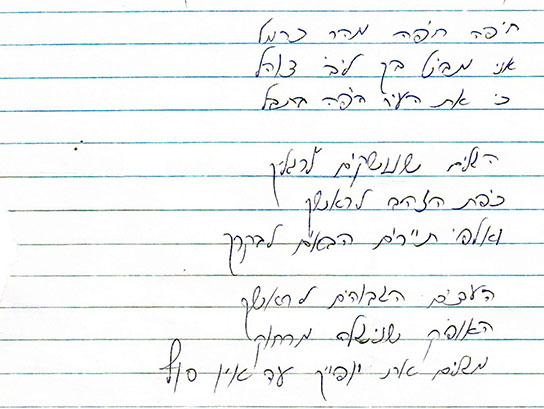 חיפה חיפה מהר כרמל
אני מביט בך ליבי צוהל
כי את העיר היפה בתבל
הגלים שנושקים לרגליך
כיפת הזהב לראשך
ואלפי תיירים הבאים לבקרך
העצים הגבוהים לראשך
האופק שנישלח מרחוק
משלים את יופייך עד אין סוף